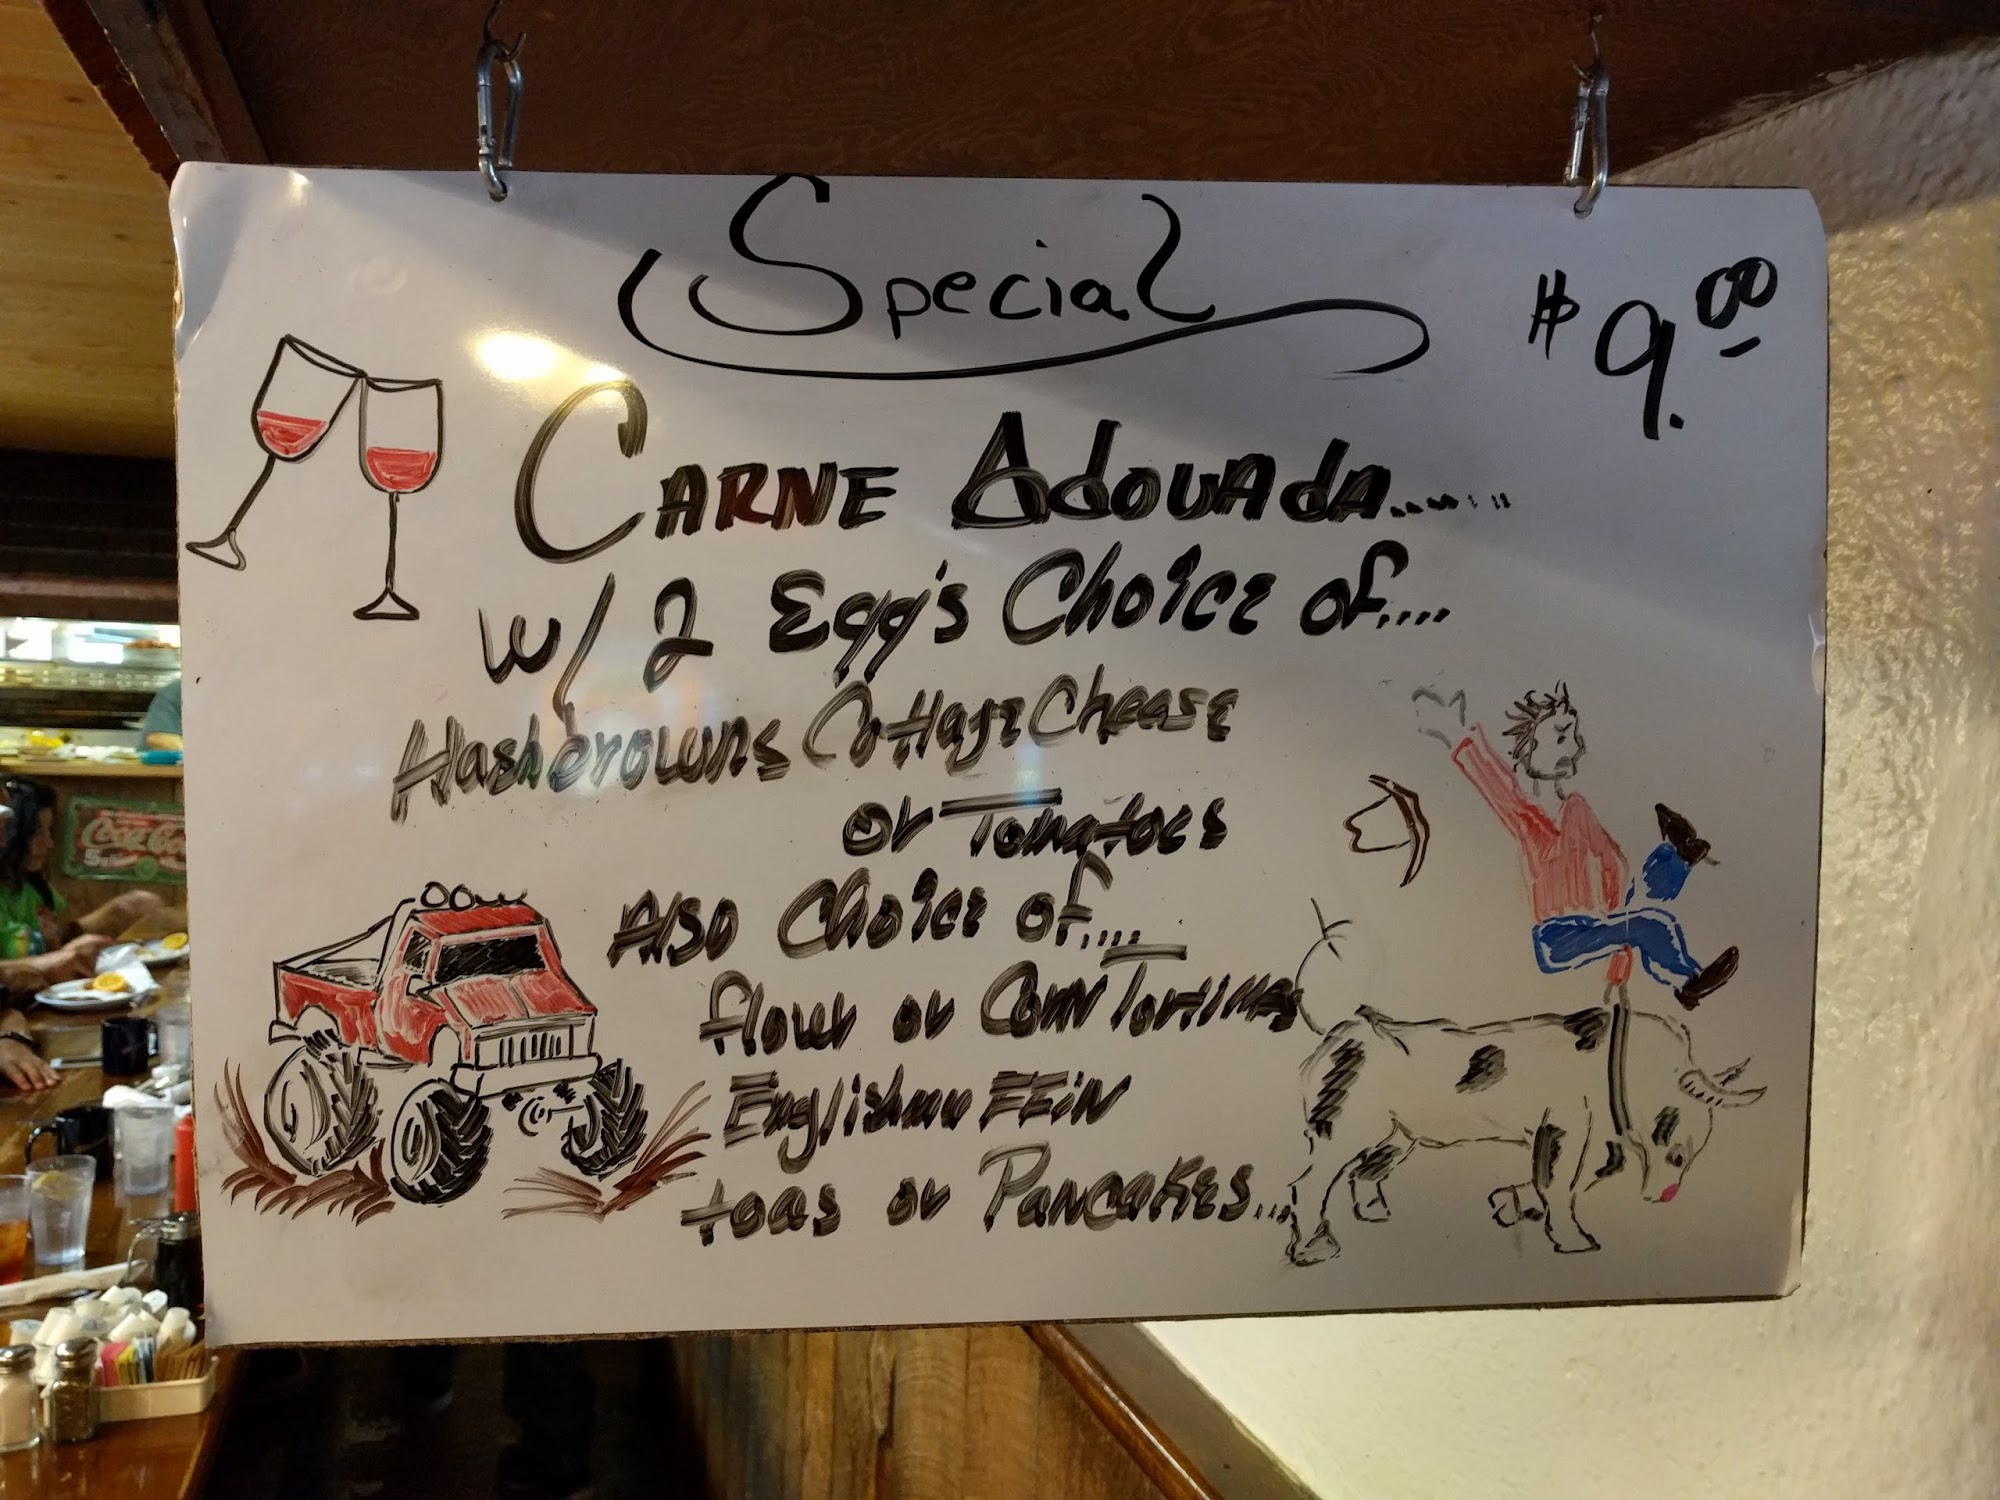 Special
$9.00
Carne Adouada.......
w/ 2 Egg's Choice of....
Hashbrowns Cottage Cheese
or Tomatoes
Also Choice of....
flour or Corn Tortillas
Englishmuffein
toas or Pancakes...
Coca-Cola
5¢